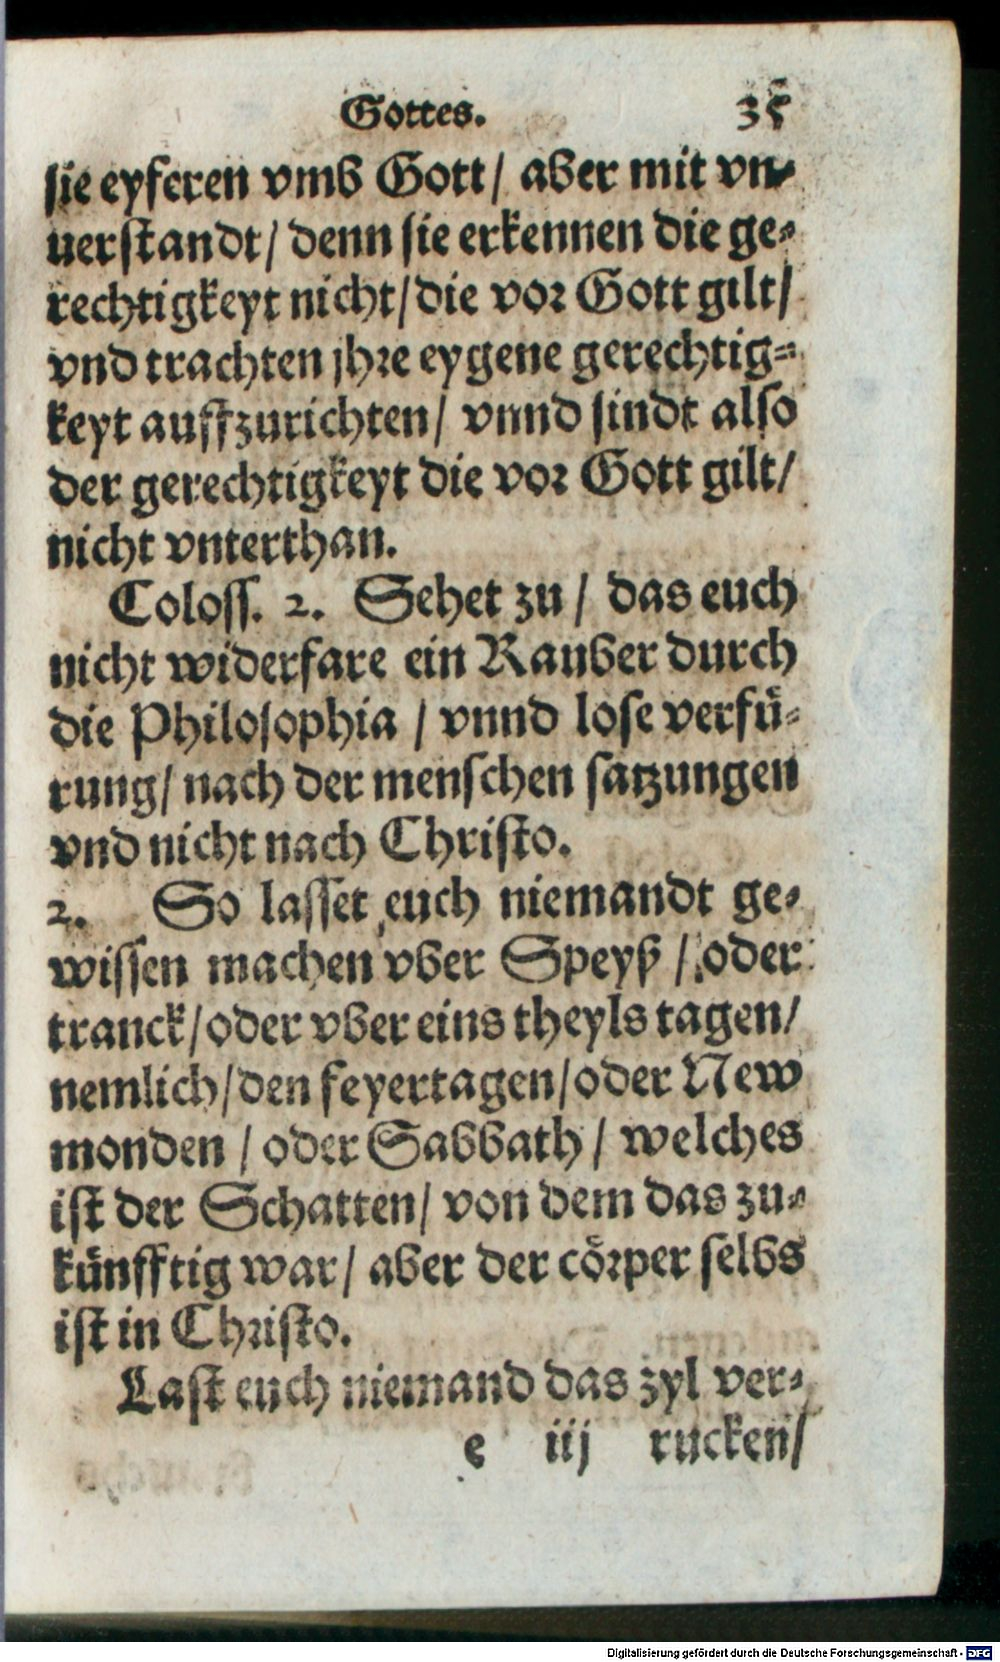 Gottes. 35
sie eyferen vmb Gott/ aber mit vn⸗
uerstandt/ denn sie erkennen die ge⸗
rechtigkeyt nicht/ die vor Gott gilt/
vnd trachten jhre eygene gerechtig⸗
keyt auffzurichten/ vnnd sindt also
der gerechtigkeyt die vor Gott gilt/
nicht vnterthan.
Coloss. 2. Sehet zu / das euch
nicht widerfare ein Rauber durch
die Philosophia / vnnd lose verfü⸗
rung/ nach der menschen satzungen
vnd nicht nach Christo.
2. So lasset euch niemandt ge⸗
wissen machen vber Speyß / oder
tranck/ oder vber eins theyls tagen/
nemlich/ den feyertagen/ oder New
monden / oder Sabbath / welches
ist der Schatten/ von dem das zu⸗
künfftig war/ aber der cörper selbs
ist in Christo.
Last euch niemand das zyl ver⸗
e iij rucken/
Digitalisierung gefördert durch die Deutsche Forschungsgemeinschaft - DFG